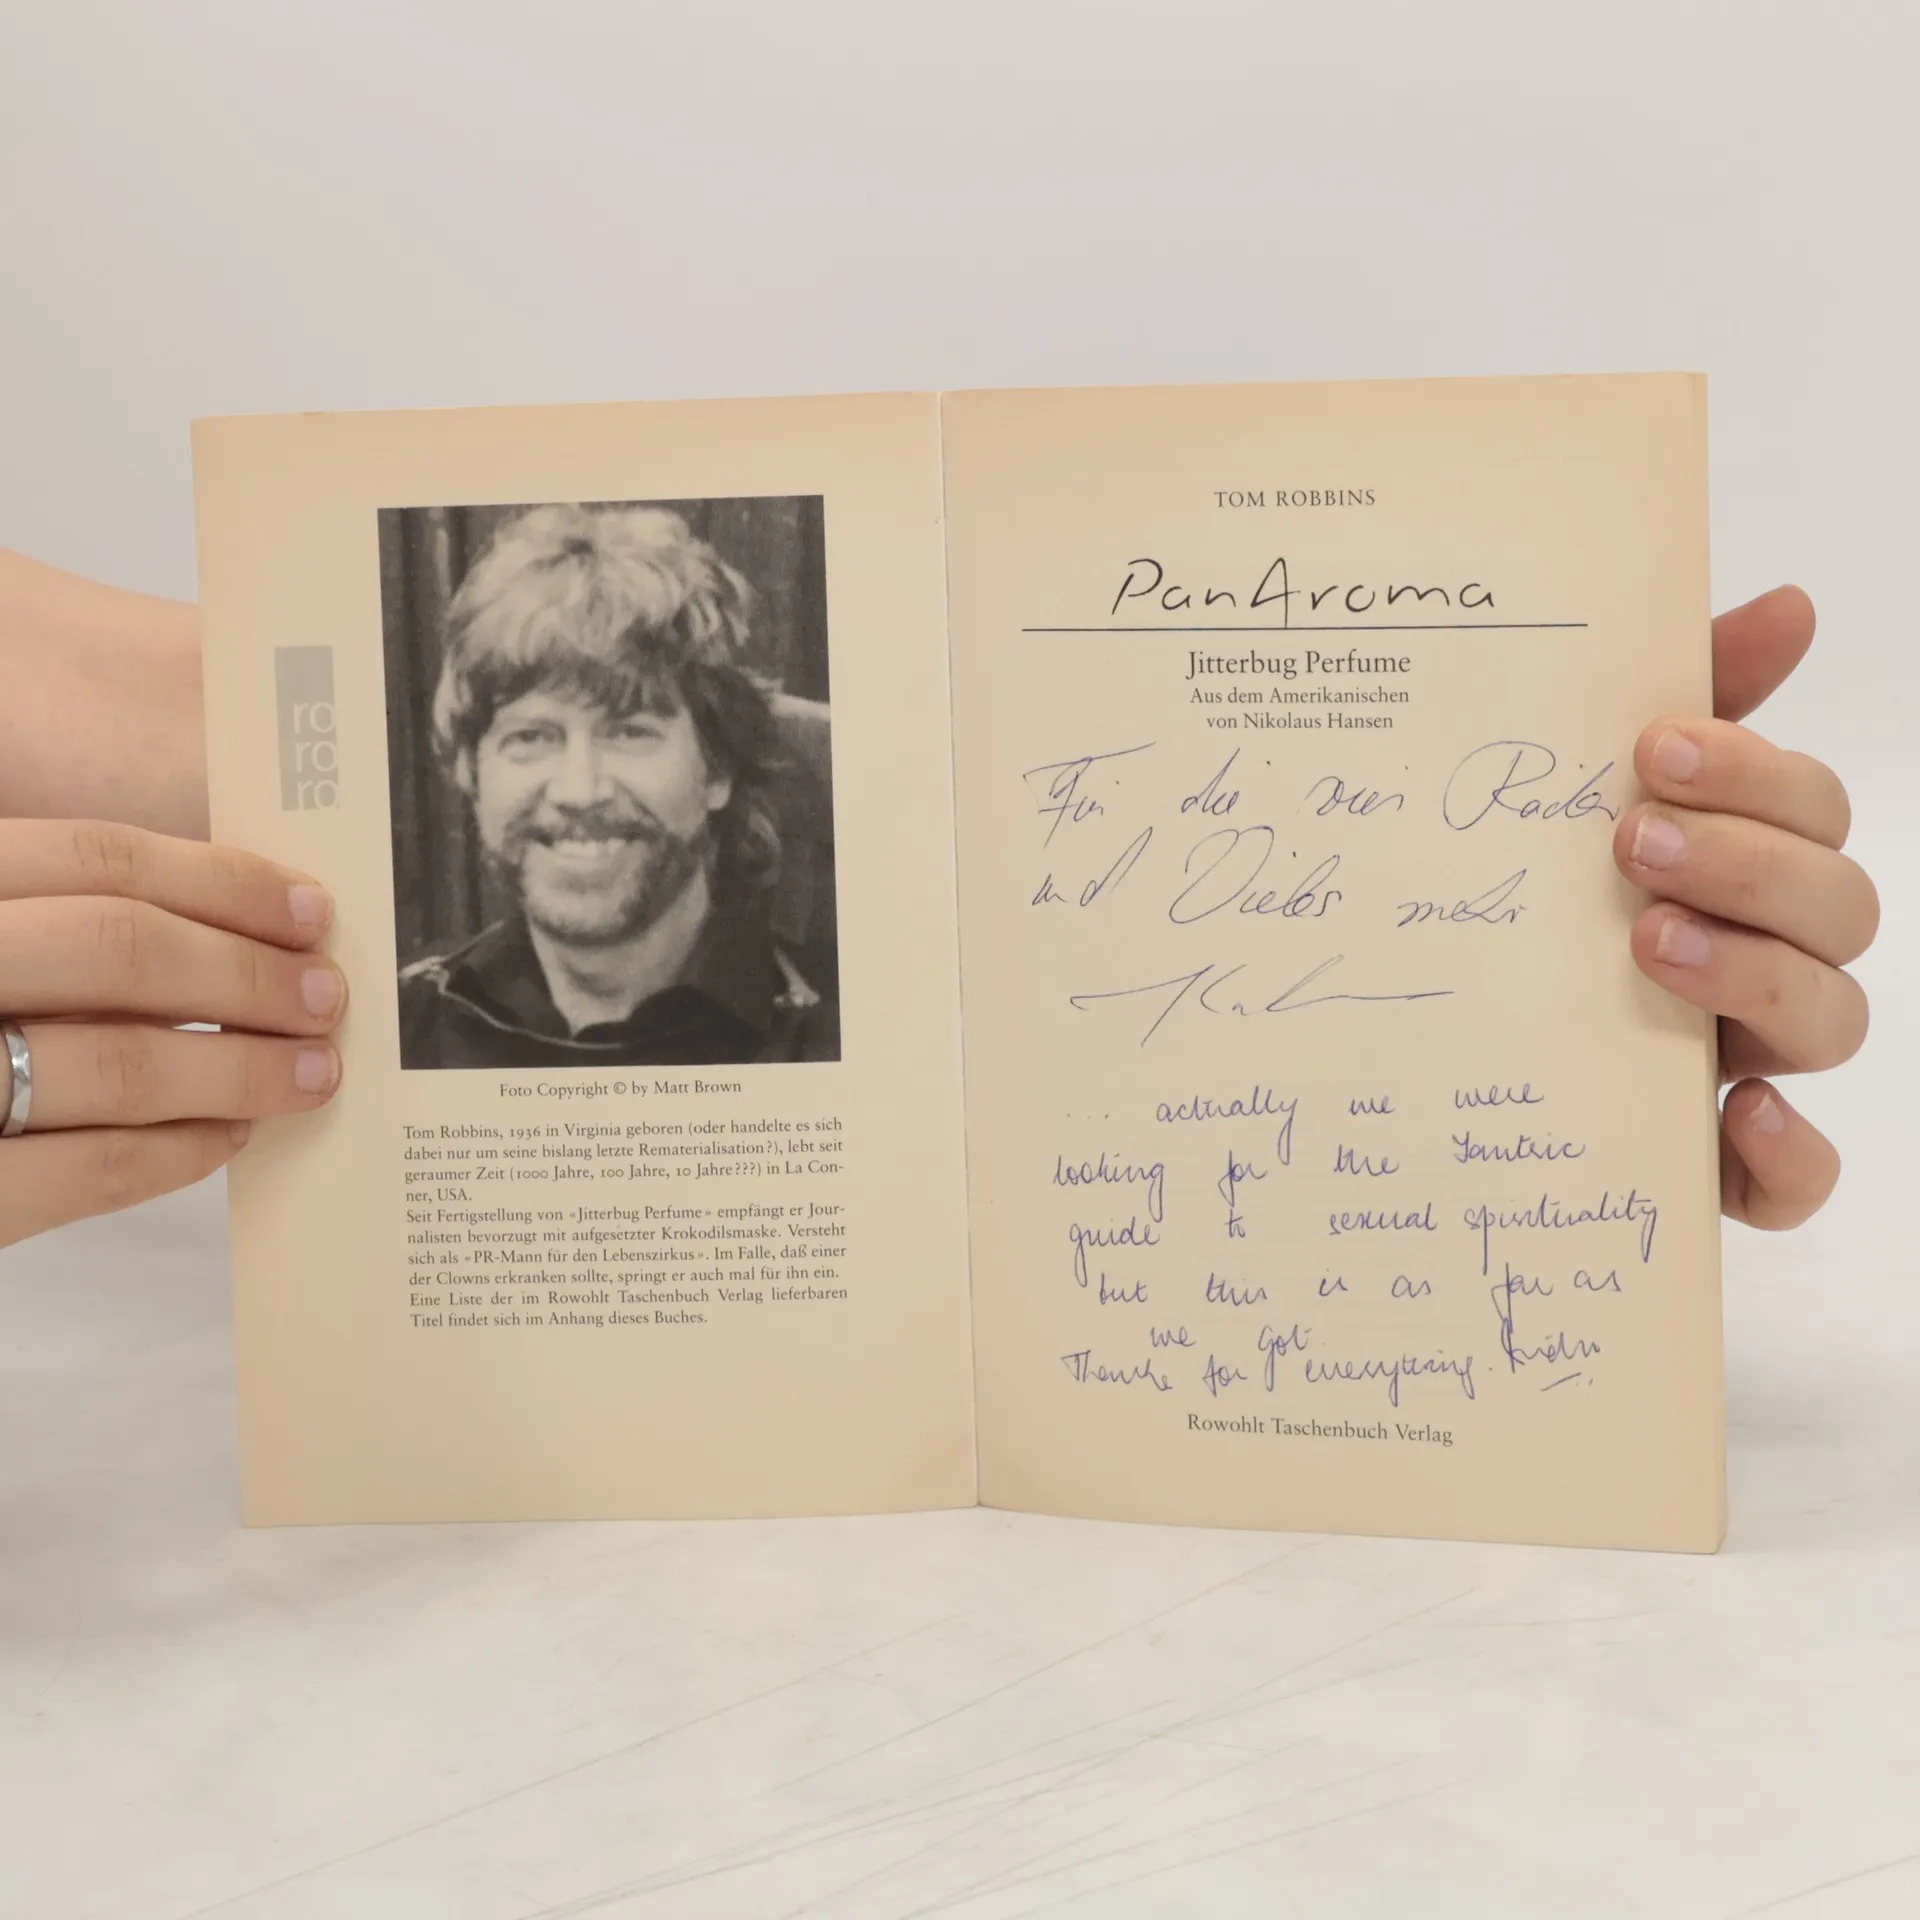 ro
ro
ro
Foto Copyright © by Matt Brown
Tom Robbins, 1936 in Virginia geboren (oder handelte es sich
dabei nur um seine bislang letzte Rematerialisation?), lebt seit
geraumer Zeit (1000 Jahre, 100 Jahre, 10 Jahre???) in La Con-
ner, USA.
Seit Fertigstellung von «Jitterbug Perfume» empfängt er Jour-
nalisten bevorzugt mit aufgesetzter Krokodilsmaske. Versteht
sich als «PR-Mann für den Lebenszirkus». Im Falle, daß einer
der Clowns erkranken sollte, springt er auch mal für ihn ein.
Eine Liste der im Rowohlt Taschenbuch Verlag lieferbaren
Titel findet sich im Anhang dieses Buches.
TOM ROBBINS
PanAroma
Jitterbug Perfume
Aus dem Amerikanischen
von Nikolaus Hansen
Für die vier Räder
und Vieles mehr
... actually we were
looking for the Tantric
guide to sexual spirituality
but this is as far as
we got.
Thanks for everything.
Rowohlt Taschenbuch Verlag